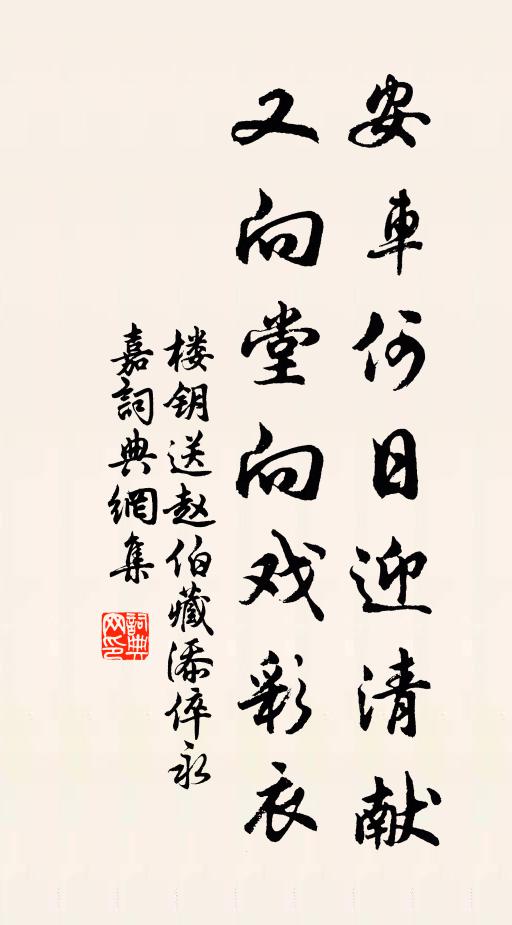 安車何日迎清献
又向堂向戏彩衣
楼钥送赵伯藏添倅永
嘉詞典網集
詞典
网印